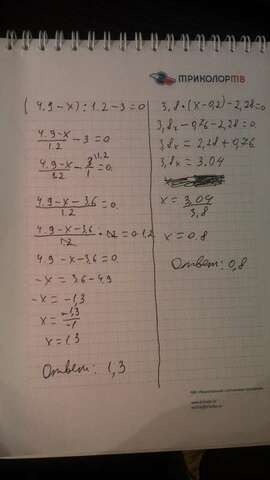 ТРИКОЛОРТВ
(4.9-x):1.2-3=0
4.9-x/1.2 - 3=0
4.9-x/1.2 - 3^1.2/1=0
4.9-x-3,6/1.2=0
4.9-x-3,6/1.2 • 1.2=0•1.2
4.9-x-3,6=0
-x=3,6-4,9
-x=-1,3
x=-1,3/-1
x=1,3
Ответ: 1,3
3,8•(x-0,2)-2,28=0
3,8x-0,76-2,28=0
3,8x=2,28+0,76
3,8x=3.04
x=3,04/3,8
x=0.8
Ответ: 0,8